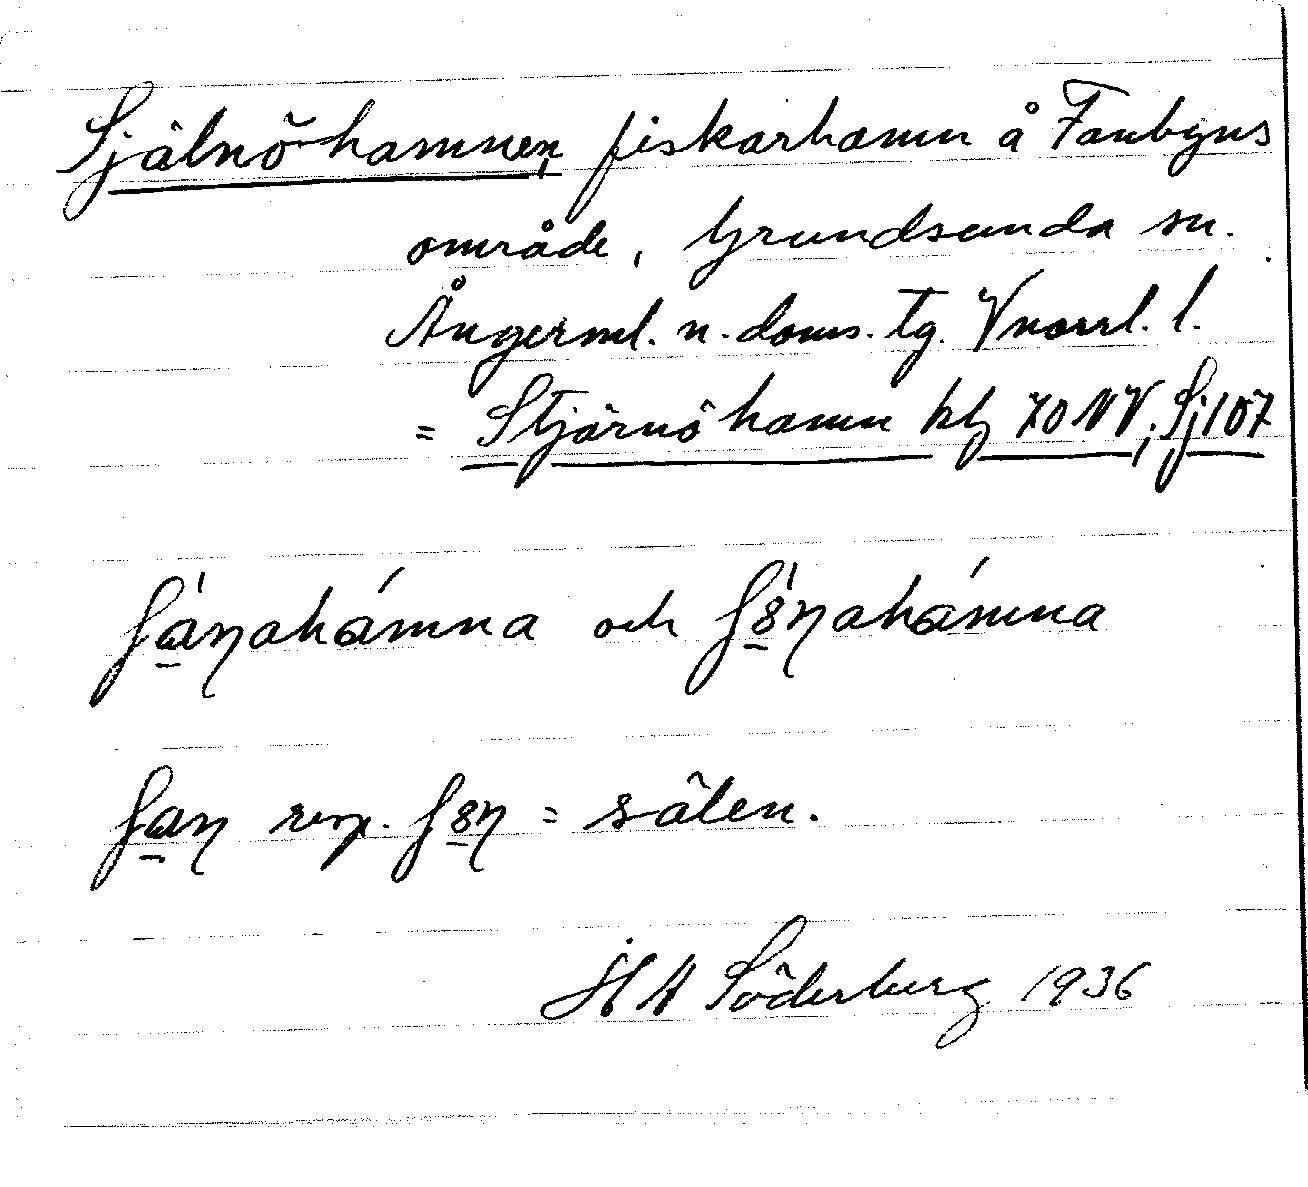 Själnöhamnen, fiskarhamn å Fanbyns
område, Grundsunda sn.
Ångerml. n. doms. tg. Vnorrl. l.
= Stjärnöhamn kbl 70 NV, Sj 107
ʃa̱ŋahámna och ʃɞ̱ŋahámna
ʃa̱ŋ resp. ʃɞ̱ŋ = sälen.
Söderberg 1936